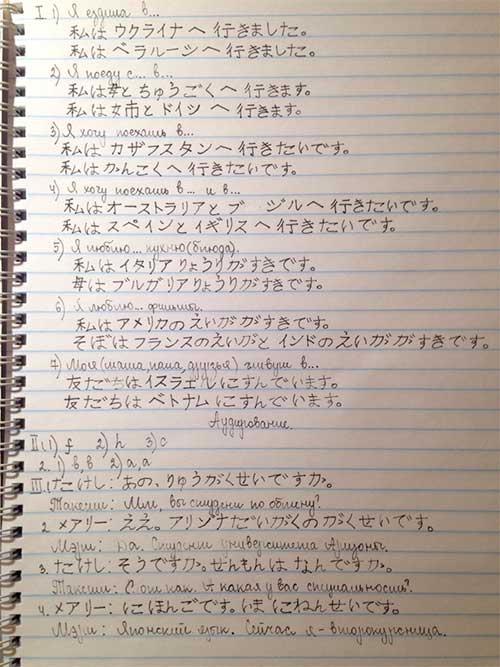 I 1) Я ездила в...
私はウクライナへ行きました。
私はベラルーシへ行きました。
2) Я поеду с... в...
私は母とちゅうごくへ行きます。
私は姉とドイツへ行きます。
3) Я хочу поехать в...
私はカザフスタンへ行きたいです。
私はかんこくへ行きたいです。
4) Я хочу поехать в... и в...
私はオーストラリアとブ ジルへ行きたいです。
私はスペインとイギリスへ行きたいです。
5) Я люблю... кухню (блюда).
私はイタリアりょうりがすきです。
母はブルガリアりょうりがすきです。
6) Я люблю... фильмы.
私はアメリカのえいががすきです。
そぼはフランスのえいがとインドのえいががすきです。
7) Моя (мама, папа, друзья) живут в...
友だちはイスラエルにすんでいます。
友だちはベトナムにすんでいます。
Аудирование.
II 1) f 2) h 3) c
2. 1) b, b 2) a, a
III. たけし: あの、りゅうがくせいですか。
Такеши: Ммм, вы студент по обмену?
2. メアリー: ええ。アリゾナだいがくのがくせいです。
Мэри: Да. Студент университета Аризоны.
3. たけし: そうですか。せんもんはなんですか。
Такеши: Вот как. А какая у вас специальность?
4. メアリー: にほんごです。いまにねんせいです。
Мэри: Японский язык. Сейчас я - второкурсница.